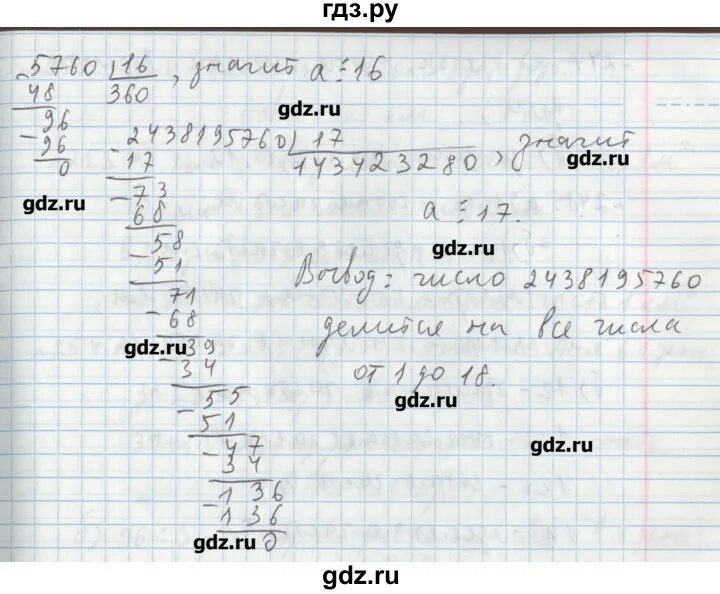 гдз.ру
5760 | 16 , значит a ⋮ 16
48 360
96 gdz.ru
- 96 2438195760 | 17 , значит
0 - 17 143423280 gdz.ru
gdz.ru - 73 a ⋮ 17.
68 gdz.ru
- 58
51 Вывод: число 2438195760
- 71
68 делится на все числа
gdz.ru 39
34 от 1 до 18.
- 55 gdz.ru
51
- 47 gdz.ru
34
- 136
136
gdz.ru 0
gdz.ru